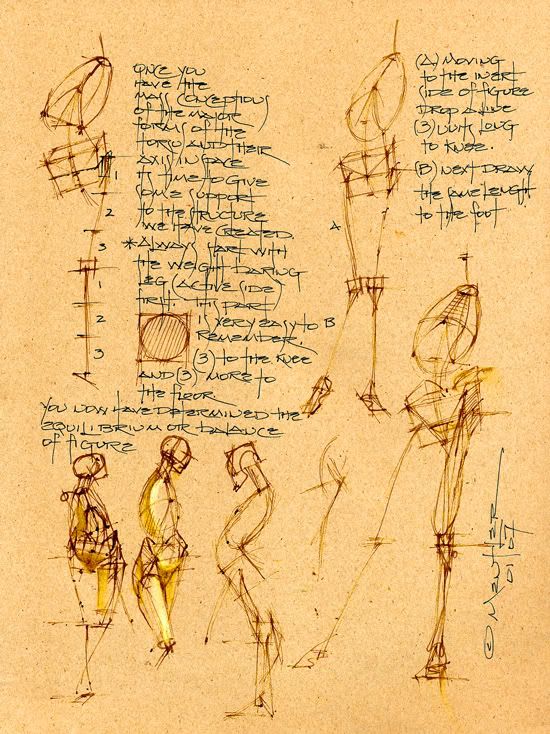 ONCE YOU
HAVE THE
MASS CONCEPTIONS
OF THE MAJOR
FORMS OF THE
TORSO AND THEIR
AXIS IN SPACE
IT'S TIME TO GIVE
SOME SUPPORT
TO THE STRUCTURE
WE HAVE CREATED
*ALWAYS START WITH
THE WEIGHT BARING
LEG (ACTIVE SIDE)
FIRST. THIS PART
IS VERY EASY TO
REMEMBER.
(3) TO THE KNEE
AND (3) MORE TO
THE FLOOR.
YOU NOW HAVE DETERMINED THE
EQUILIBRIUM OR BALANCE
OF FIGURE
1
2
3
1
2
3
(A) MOVING
TO THE INERT
SIDE OF FIGURE
DROP A LINE
(3) UNITS LONG
TO KNEE.
(B) NEXT DRAW
THE SAME LENGTH
TO THE FOOT
A
B
©